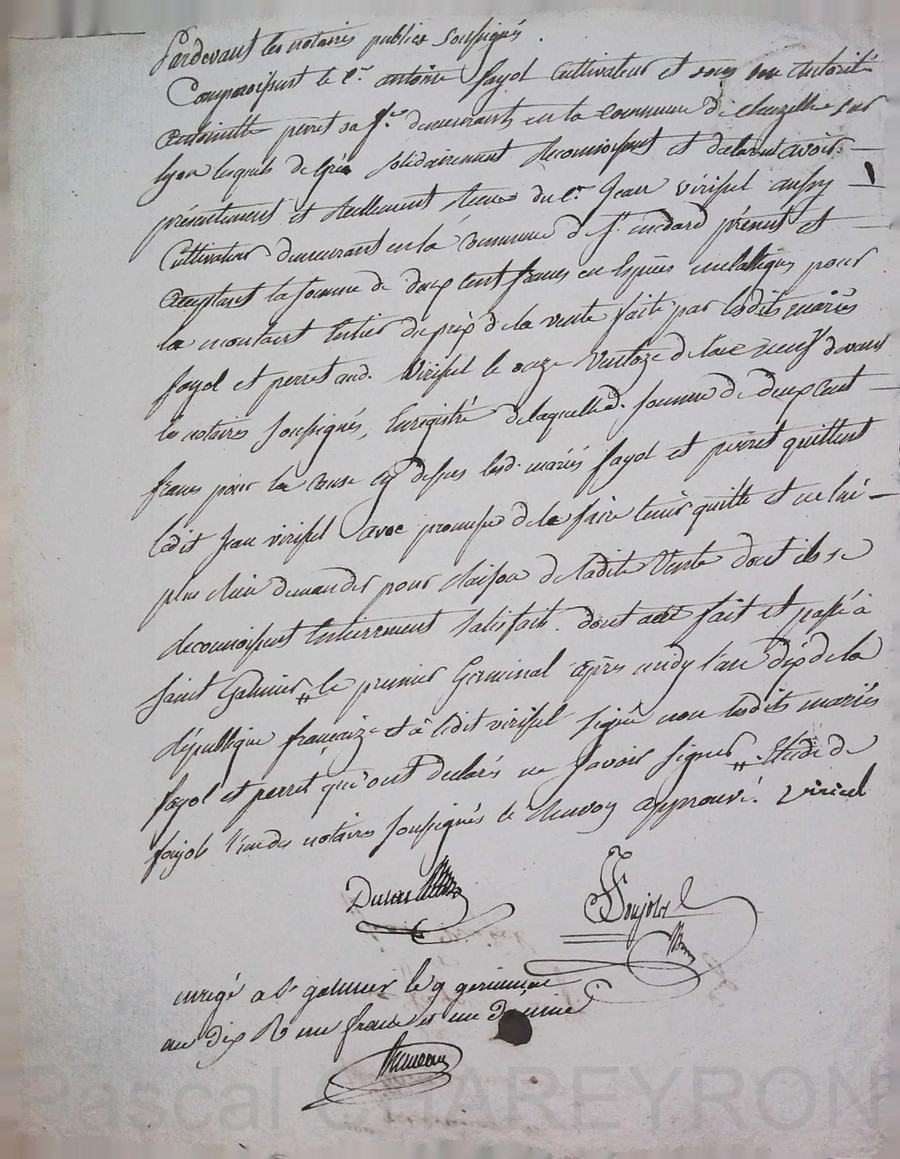 Pardevant les notaires publics soussignés.
Comparoissent le C.en antoine fayol Cultivateur et sous son autorité
antoinette perret sa f.e demeurants en la commune de chazelles sur
lyon lesquels de gré solidairement reconnoissent et declarent avoir
présentement et réellement reçu du C.en Jean viricel aussy
Cultivateur demeurant en la Commune de S.t médard présent et
acceptant la somme de deux cent francs en Espèces métalliques pour
le montant entier du prix de la vente faite par lesdits mariés
fayol et perret aud. Viricel le onze Ventoze de l'an neuf devant
les notaires soussignés, Enregistré de laquelle d. somme de deux Cent
francs pour la cause cy dessus lesd. mariés fayol et perret quittent
ledit jean viricel avec promesse de le faire tenir quitte et ne lui
plus rien demander pour raison de ladite Vente dont ils se
reconnoissent Entierrement satisfaits. dont acte fait et passé à
Saint Galmier, le premier Germinal après midy l'an dix de la
république françaize et à ledit viricel signé non lesdits mariés
fayol et perret qui ont declarés ne savoir signer. Etude de
foujols l'un des notaires soussignés le renvoy approuvé. viricel
Foujols
enregé a S.t galmier le 9 germinal
an dix R un franc et un decime
Pascal CHAREYRON